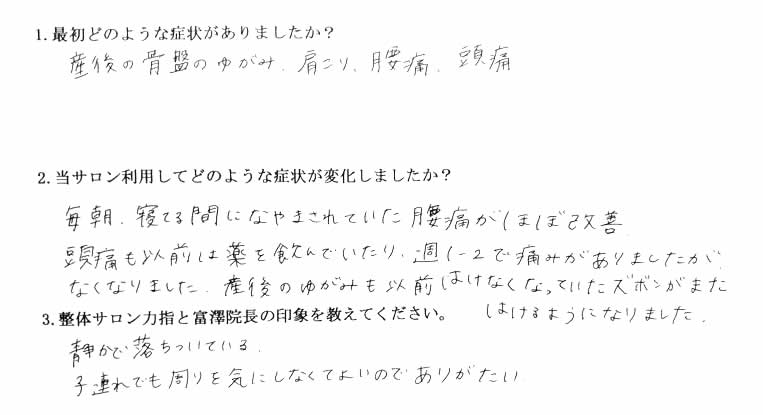 1.最初どのような症状がありましたか？
産後の骨盤のゆがみ、肩こり、腰痛、頭痛
2.当サロン利用してどのような症状が変化しましたか？
毎朝、寝てる間になやまされていた腰痛がほぼ改善
頭痛も以前は薬を飲んでいたり、週1-2で痛みがありましたが、
なくなりました。産後のゆがみも以前はけなくなっていたズボンがまた
はけるようになりました。
3.整体サロン力指と富澤院長の印象を教えてください。
静かで落ちついている。
子連れでも周りを気にしなくてよいのでありがたい